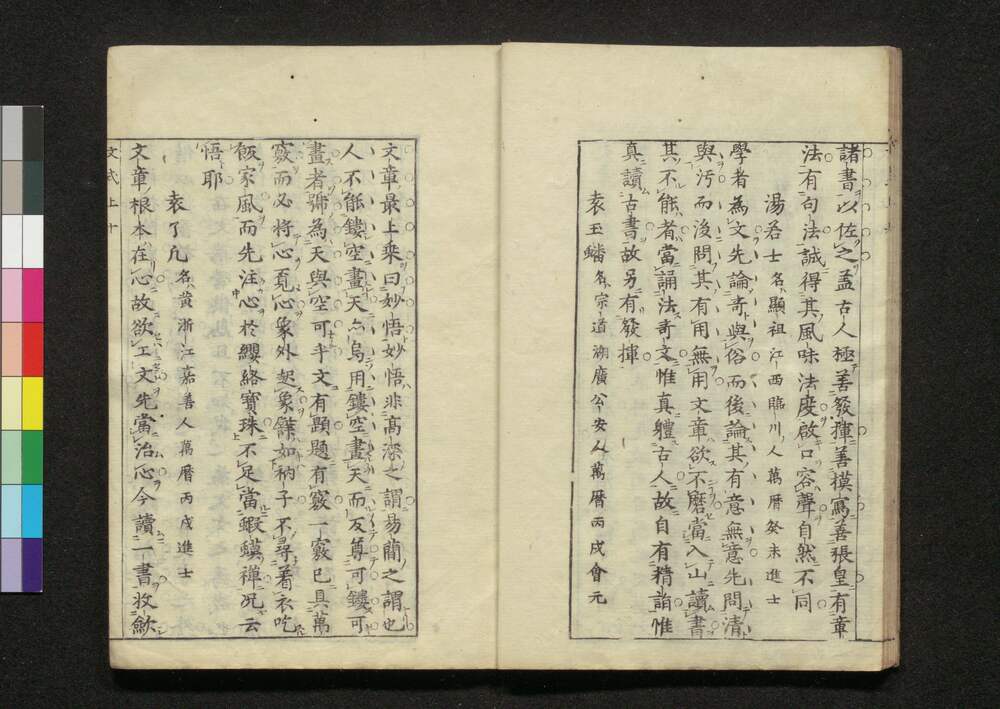 諸書以佐之盖古人極善發揮善模寫善張皇有章
法有句法誠得其風味法度啟口容聲自然不同
湯若士名顯祖江西臨川人萬曆癸未進士
學者為文先論奇與俗而後論其有意無意先問清
與汚而後問其有用無用文章欲不磨當入山讀書
其不能者當誦法奇文惟真體古人故自有精詣惟
真讀古書故另有發揮
袁玉蟠名宗道湖廣公安人萬曆丙戌會元
文章最上乘曰妙悟妙悟非高深之謂易簡之謂也
人不能鏤空畫天亦烏用鏤空畫天而反尊可鏤可
畫者號為天與空可乎文有顯題有竅一竅已具萬
竅而必將心覓心象外起象雖如衲子不尋著衣吃
飯家風而先注心於纓絡寶珠不足當蝦蟆禪况云
悟耶
袁了凡名黄浙江嘉善人萬曆丙戌進士
文章根本在心故欲工文先當治心今讀一書收歛
文式上十